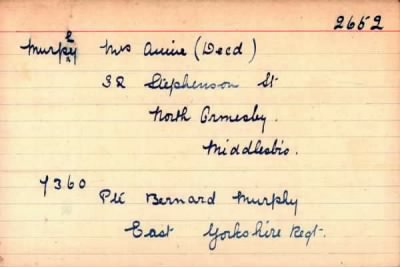 2652
Murphy Mrs Annie (Decd)
32 Stephenson St
North Ormesby.
Middlesbro.
7360
Pte Bernard Murphy
East Yorkshire Regt.